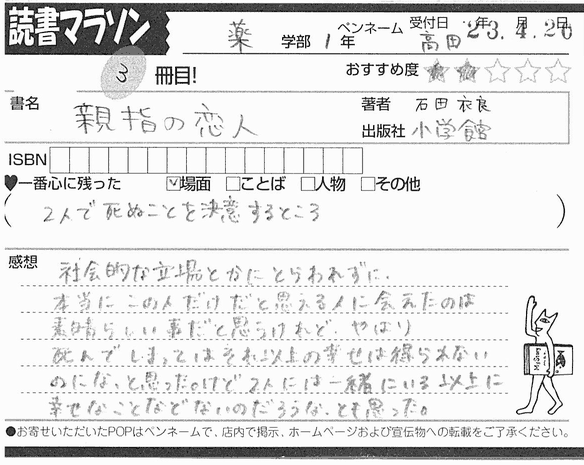 読書マラソン
薬 学部 1年 ペンネーム 高田 受付日 23年4月20日
3 冊目! おすすめ度 ★★☆☆☆
書名 親指の恋人 著者 石田衣良
出版社 小学館
ISBN
♥一番心に残った ☑場面 □ことば □人物 □その他
(2人で死ぬことを決意するところ)
感想
社会的な立場とかにとらわれずに、
本当にこの人だけだと思える人に会えたのは
素晴らしい事だと思うけれど、やはり
死んでしまってはそれ以上の幸せは得られない
のにな、と思った。けど2人には一緒にいる以上に
幸せなことなどないのだろうな、とも思った。
My Story
●お寄せいただいたPOPはペンネームで、店内で掲示、ホームページおよび宣伝物への転載をご了承ください。